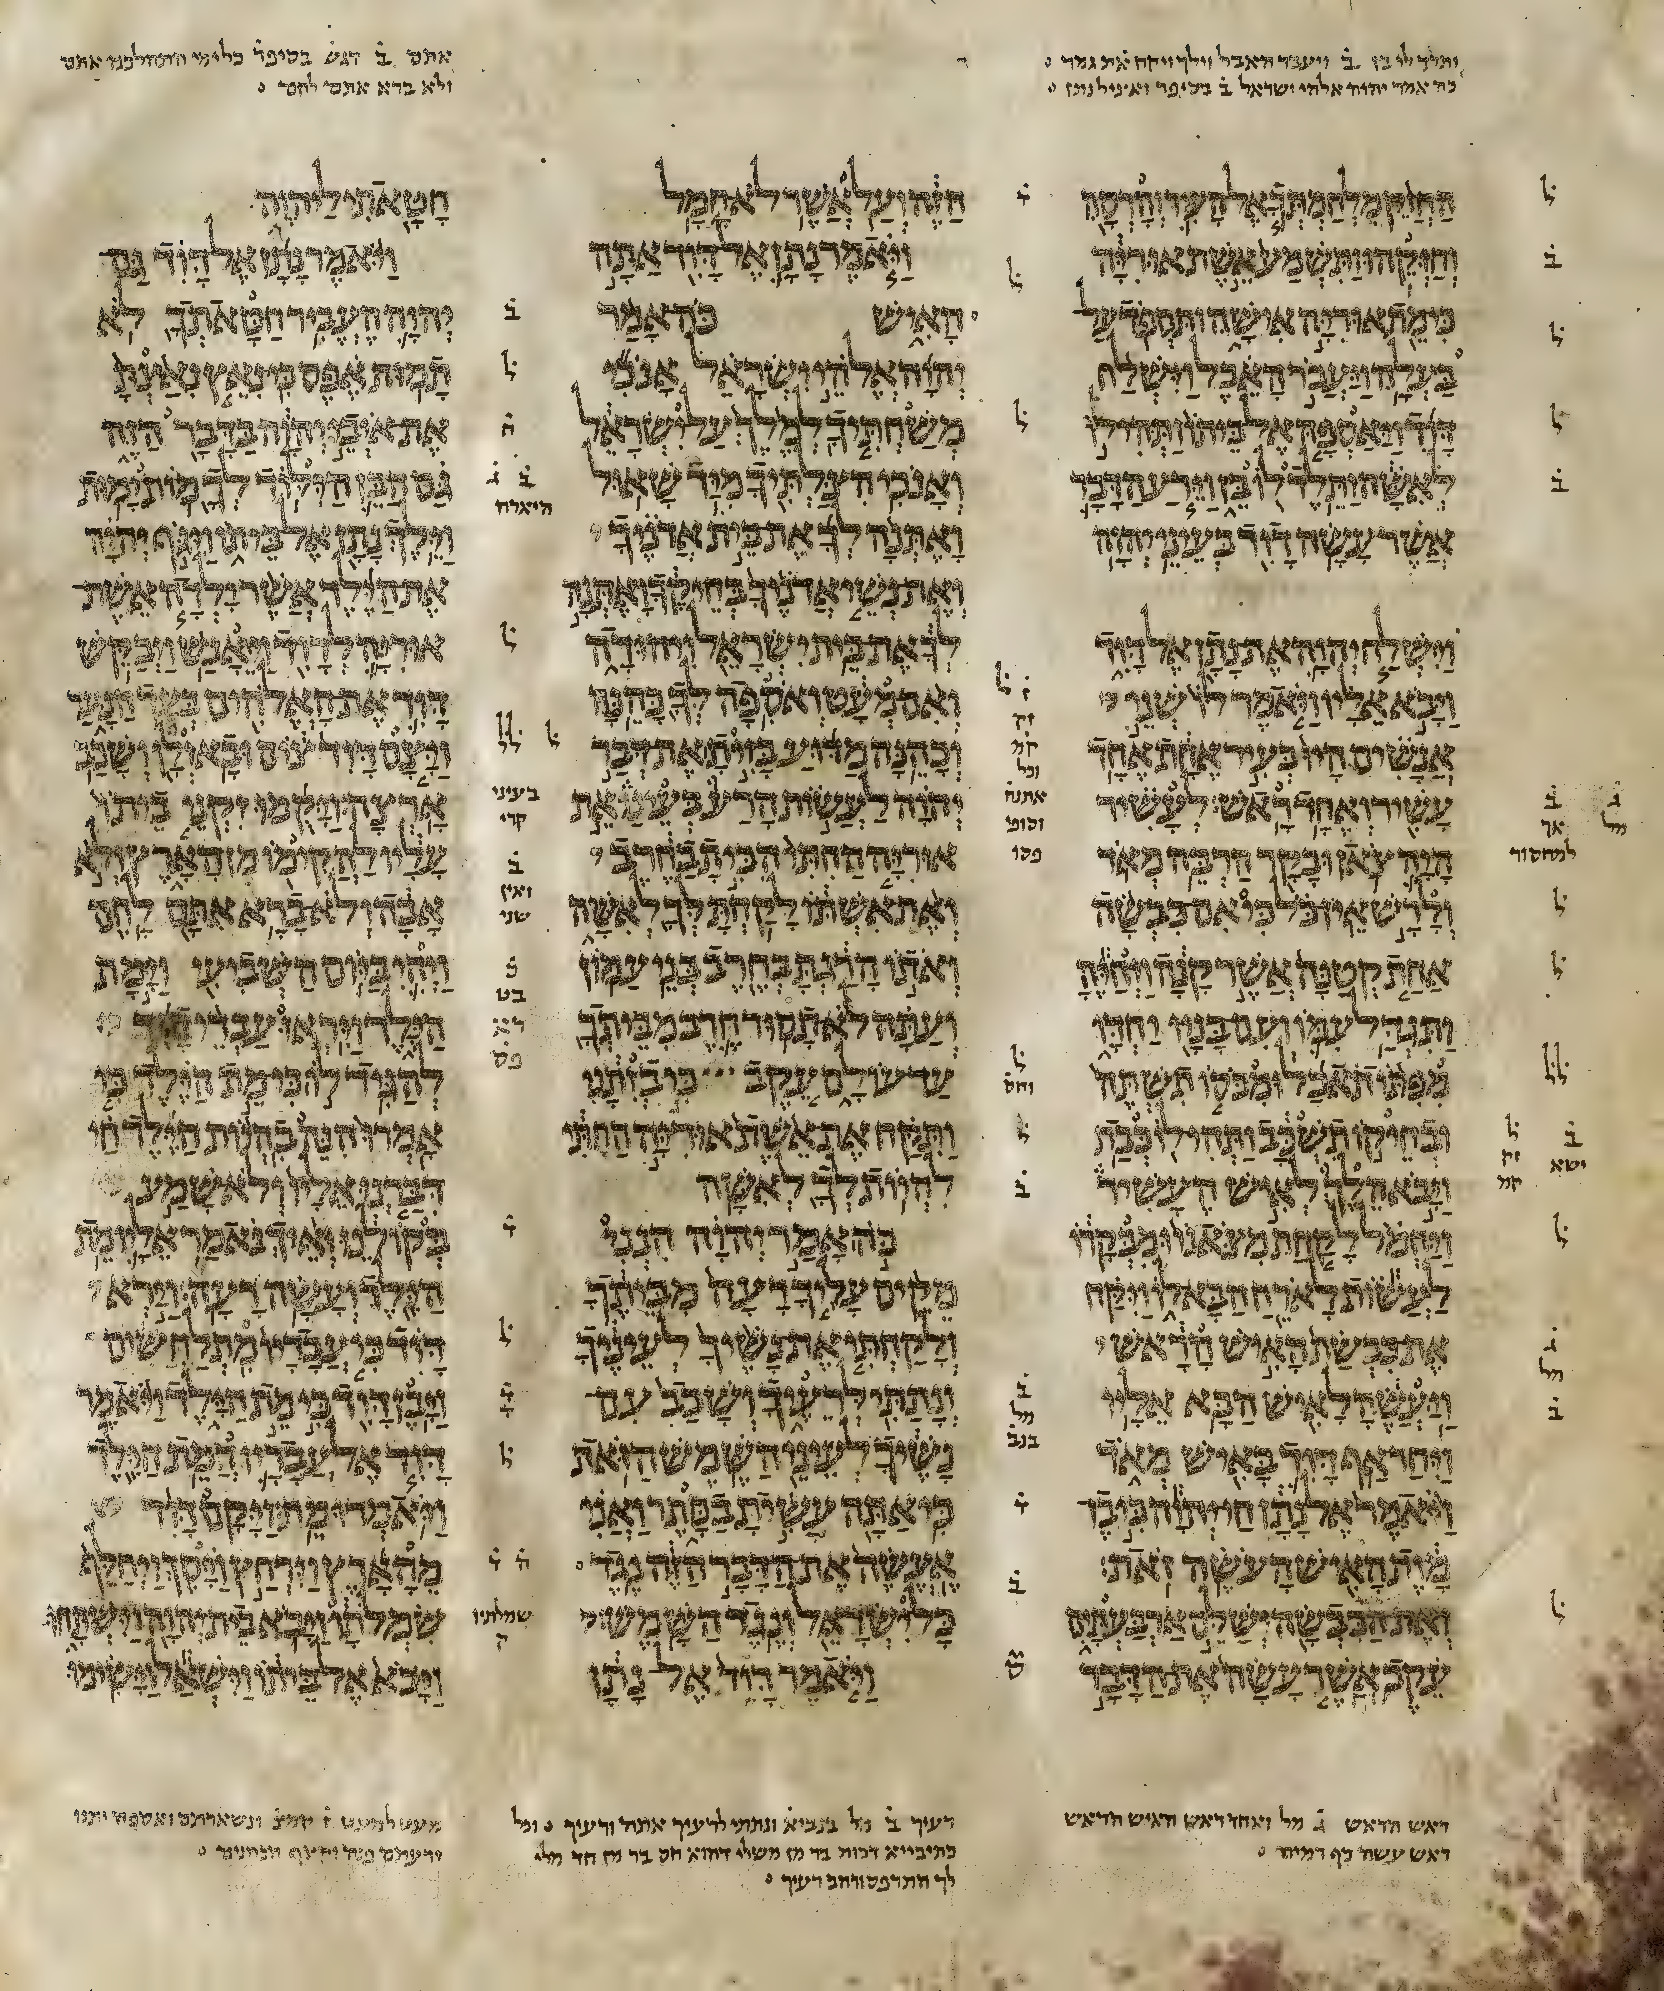 ותלד לו בן ב ויעבר האבל וילך ויקח את גמר
כה אמר יהוה אלהי ישראל ב בסיפר
אתם ב דגש בסיפר
ולא ברא אתם לחם
החזק מלחמתך אל העיר והרסה
וחזקהו ותשמע אשת אוריה
כי מת אוריה אישה ותספד על
בעלה ויעבר האבל וישלח
דוד ויאספה אל ביתו ותהי לו
לאשה ותלד לו בן וירע הדבר
אשר עשה דוד בעיני יהוה
וישלח יהוה את נתן אל דוד
ויבא אליו ויאמר לו שני
אנשים היו בעיר אחת אחד
עשיר ואחד ראש לעשיר
היה צאן ובקר הרבה מאד
ולרש אין כל כי אם כבשה
אחת קטנה אשר קנה ויחיה
ותגדל עמו ועם בניו יחדו
מפתו תאכל ומכסו תשתה
ובחיקו תשכב ותהי לו כבת
ויבא הלך לאיש העשיר
ויחמל לקחת מצאנו ומבקרו
לעשות לארח הבא לו ויקח
את כבשת האיש הראש
ויעשה לאיש הבא אליו
ויחר אף דוד באיש מאד
ויאמר אל נתן חי יהוה כי בן
מות האיש העשה זאת
ואת הכבשה ישלם ארבעתים
עקב אשר עשה את הדבר
הזה ועל אשר לא חמל
ויאמר נתן אל דוד אתה
האיש כה אמר
יהוה אלהי ישראל אנכי
משחתיך למלך על ישראל
ואנכי הצלתיך מיד שאול
ואתנה לך את בית אדניך
ואת נשי אדניך בחיקך ואתנה
לך את בית ישראל ויהודה
ואם מעט ואספה לך כהנה
וכהנה מדוע בזית את דבר
יהוה לעשות הרע בעינו את
אוריה החתי הכית בחרב
ואת אשתו לקחת לך לאשה
ואתו הרגת בחרב בני עמון
ועתה לא תסור חרב מביתך
עד עולם עקב כי בזתני
ותקח את אשת אוריה החתי
להיות לך לאשה
כה אמר יהוה הנני
מקים עליך רעה מביתך
ולקחתי את נשיך לעיניך
ונתתי לרעיך ושכב עם
נשיך לעיני השמש הזאת
כי אתה עשית בסתר ואני
אעשה את הדבר הזה נגד
כל ישראל ונגד השמש
ויאמר דוד אל נתן
חטאתי ליהוה
ויאמר נתן אל דוד גם
יהוה העביר חטאתך לא
תמות אפס כי נאץ נאצת
את איבי יהוה בדבר הזה
גם הבן הילוד לך מות ימות
וילך נתן אל ביתו ויגף יהוה
את הילד אשר ילדה אשת
אוריה לדוד ויאנש ויבקש
דוד את האלהים בעד הנער
ויצם דוד צום ובא ולן ושכב
ארצה ויקמו זקני ביתו
עליו להקימו מן הארץ ולא
אבה ולא ברא אתם לחם
ויהי ביום השביעי וימת
הילד ויראו עבדי דוד
להגיד לו כי מת הילד כי
אמרו הנה בהיות הילד חי
דברנו אליו ולא שמע
בקולנו ואיך נאמר אליו מת
הילד ועשה רעה וירא
דוד כי עבדיו מתלחשים
ויבן דוד כי מת הילד ויאמר
דוד אל עבדיו המת הילד
ויאמרו מת ויקם דוד
מהארץ וירחץ ויסך ויחלף
שמלתו ויבא בית יהוה וישתחו
ויבא אל ביתו וישאל וישימו
בעיני
קרי
ראש הראש ג מל ואחד ראש האיש הראש
ראש עשה כף רמיה
רעיך ב מל בנביא ונתתי לרעיך אתה ורעיך וכל
לך התרפס ורהב רעיך